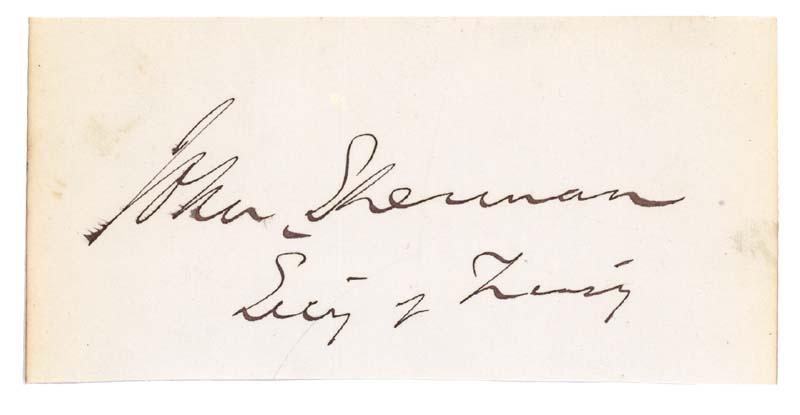 John Sherman
Secy of Treasy